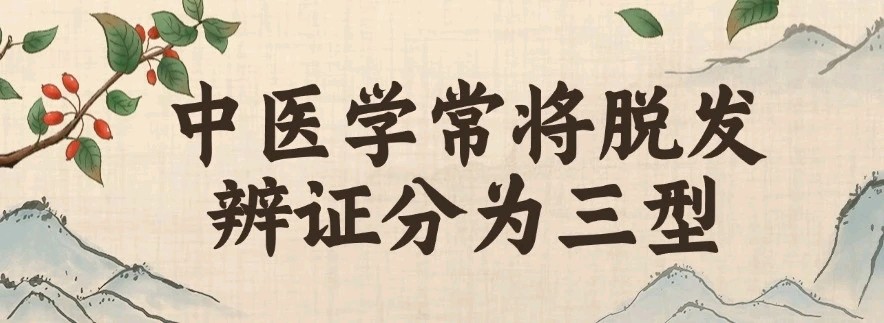 中医学常将脱发
辨证分为三型